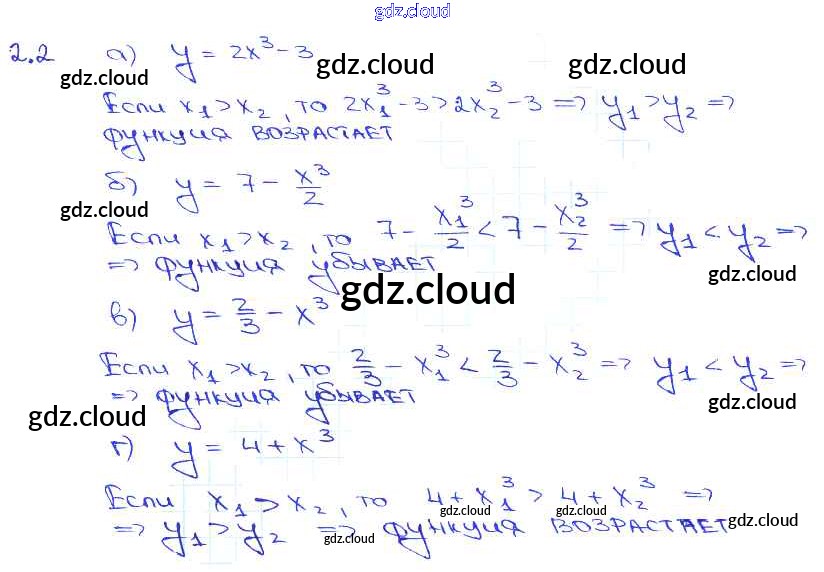 gdz.cloud
2.2 а) y = 2x³ - 3
gdz.cloud gdz.cloud gdz.cloud
Если x₁ > x₂, то 2x₁³ - 3 > 2x₂³ - 3 => y₁ > y₂ =>
функция ВОЗРАСТАЕТ
б) y = 7 - x³/2
gdz.cloud gdz.cloud
Если x₁ > x₂, то 7 - x₁³/2 < 7 - x₂³/2 => y₁ < y₂ =>
=> функция убывает
gdz.cloud
gdz.cloud
в) y = 2/3 - x³
Если x₁ > x₂, то 2/3 - x₁³ < 2/3 - x₂³ => y₁ < y₂ =>
=> функция убывает
gdz.cloud
gdz.cloud
г) y = 4 + x³
Если x₁ > x₂, то 4 + x₁³ > 4 + x₂³ =>
gdz.cloud
=> y₁ > y₂ => функция ВОЗРАСТАЕТ
gdz.cloud
gdz.cloud